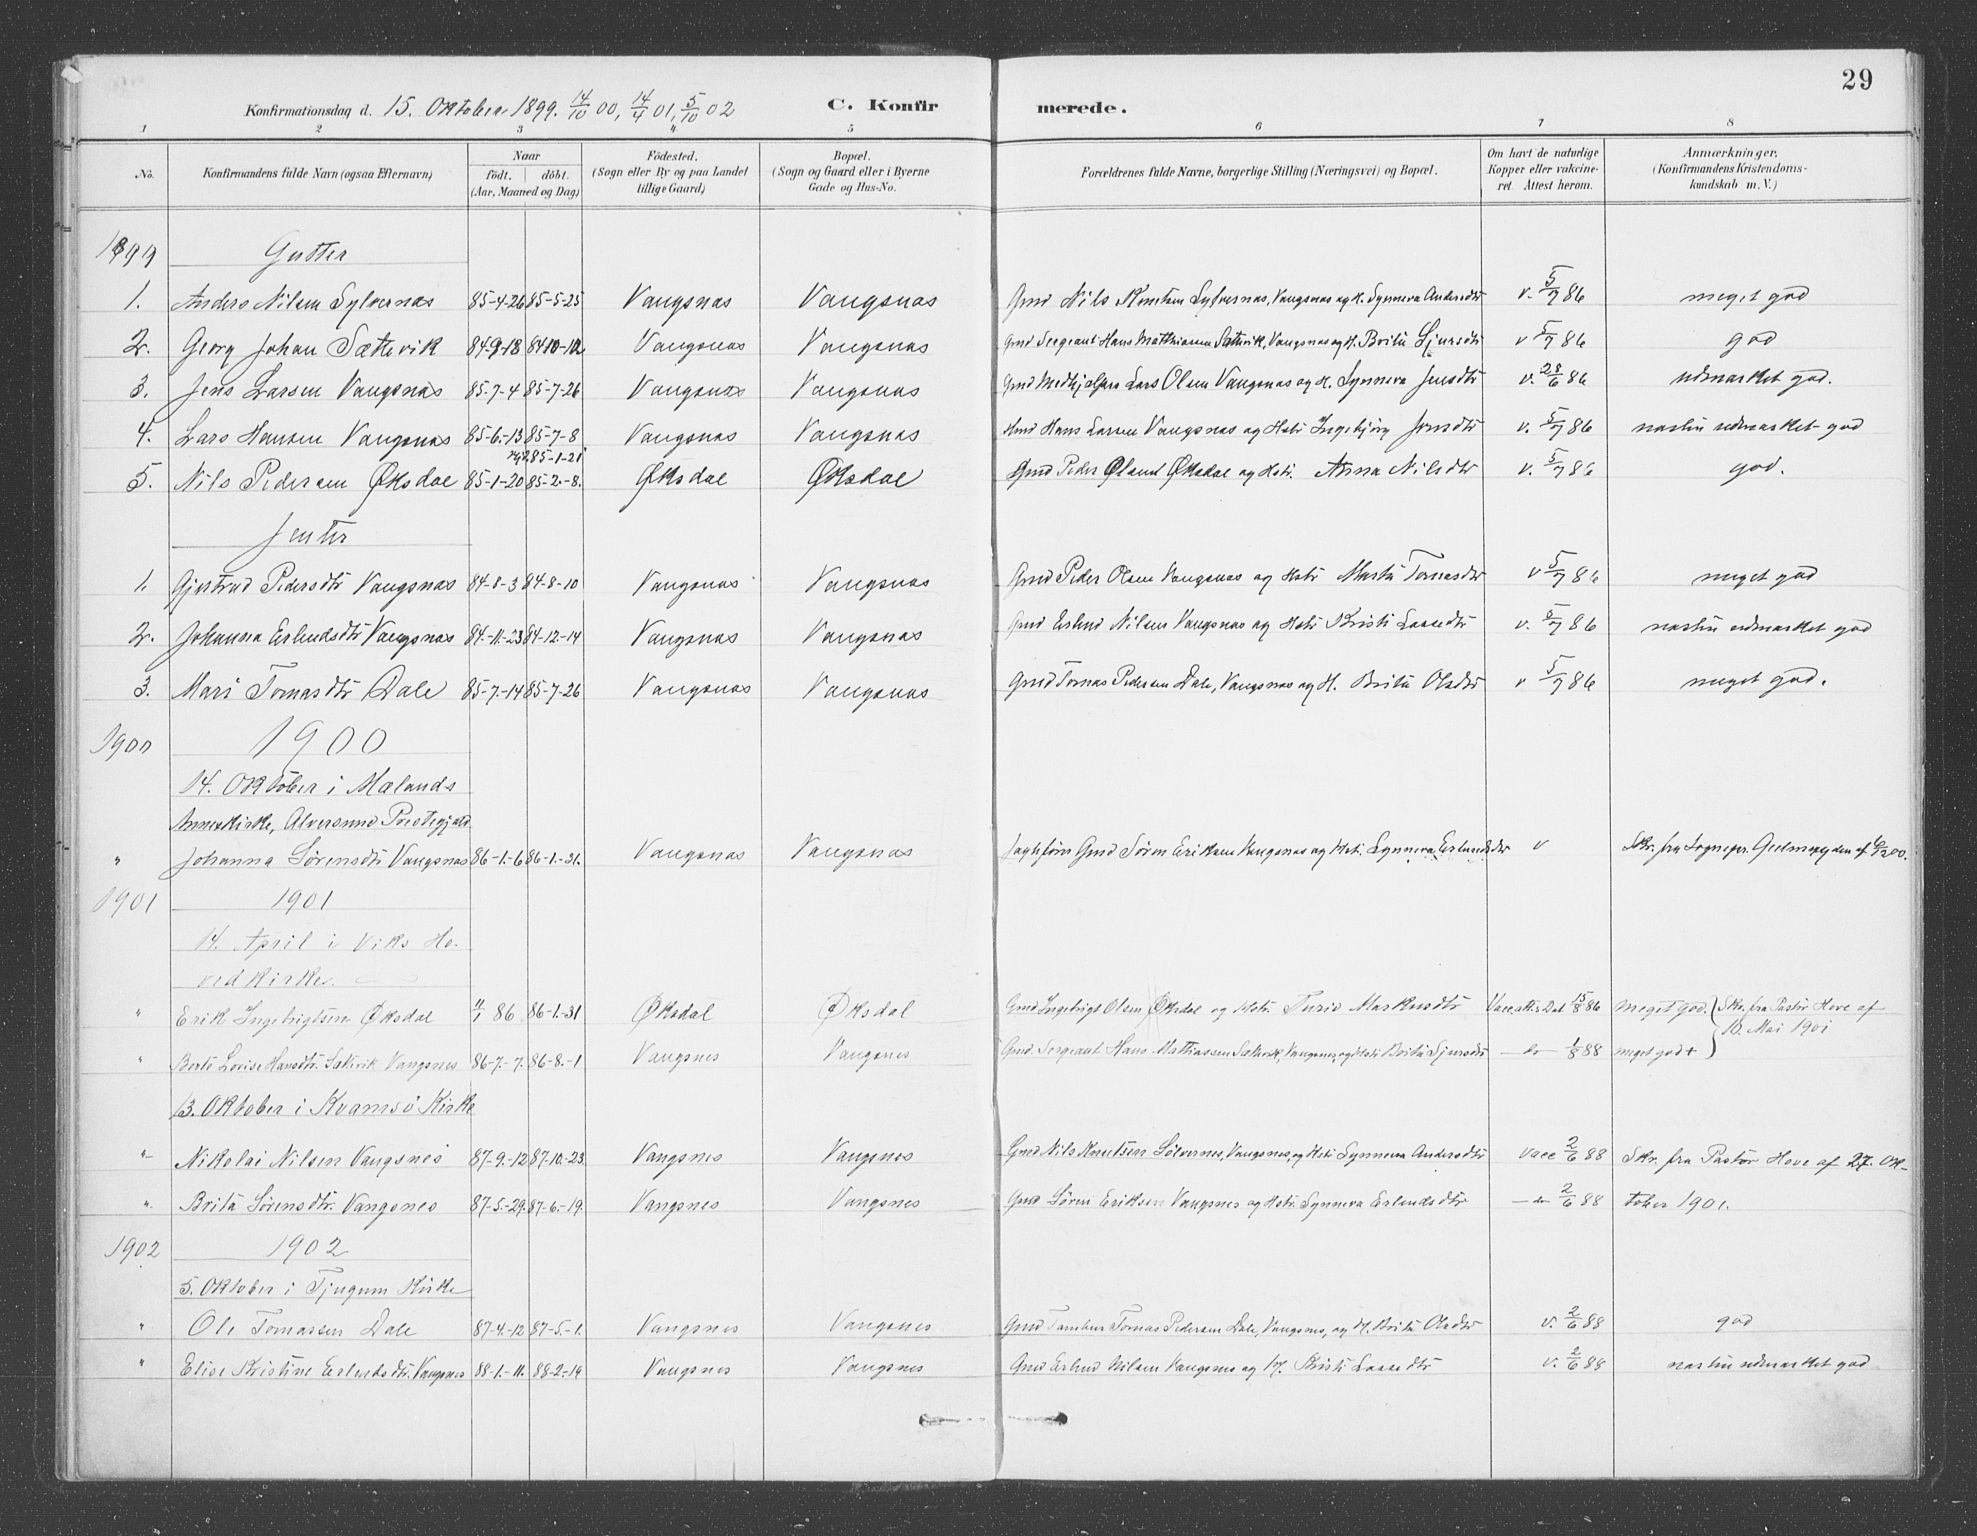 29
Konfirmationsdag d. 15. Oktober 1899. 14/10 00, 14/4 01, 5/10 02 C. Konfirmerede.
1 2 3 4 5 6 7 8
No. Konfirmandens fulde Navn (ogsaa Efternavn) Naar födt. döbt. (Aar, Maaned og Dag) Födested. (Sogn eller By og paa Landet tillige Gaard) Bopæl. (Sogn og Gaard eller i Byerne Gade og Hus-No. Forældrenes fulde Navne, borgerlige Stilling (Næringsvei) og Bopæl. Om havt de naturlige Kopper eller vakcineret. Attest herom. Anmærkninger. (Konfirmandens Kristendomskundskab m. V.)
1899 Gutter
1. Anders Nilsen Sylvernæs 85-4-26 85-5-25 Vangsnæs Vangsnæs Gmd Nils Knutsen Sylvernæs, Vangsnæs og H. Synneva Andersdtr v. 5/7 86 meget god
2. Georg Johan Sættevik 84-9-18 84-10-12 Vangsnæs Vangsnæs Gmd Sergeant Hans Matthiassen Sættevik, Vangsnæs og H. Brita Sjursdtr v 5/7 86 god
3. Jens Larsen Vangsnæs 85-7-4 85-7-26 Vangsnæs Vangsnæs Gmd Medhjelper Lars Olsen Vangsnæs og H. Synneva Jensdtr v. 28/6 86 udmærket god.
4. Lars Hansen Vangsnæs 85-6-13 85-7-8 Vangsnæs Vangsnæs Gmd Hans Larsen Vangsnæs og Hstr Ingebjørg Jonsdtr v. 5/7 86 næsten udmærket god
85-1-21
5. Nils Pedersen Øksdal 85-1-20 85-2-8. Øksdal Øksdal Gmd Peder Olsen Øksdal og Hstr. Anna Nilsdtr v. 5/7 86 god.
Jenter
1. Gjertrud Pedersdtr Vangsnæs 84-8-3 84-8-10 Vangsnæs Vangsnæs Gmd Peder Olsen Vangsnæs og Hstr Marta Tomasdtr v 5/7 86 meget god
2. Johanna Erlendsdtr Vangsnæs 84-11-23 84-12-14 Vangsnæs Vangsnæs Gmd Erlend Nilsen Vangsnæs og Hstr Kristi Lassedtr v. 5/7 86 næsten udmærket god
3. Mari Tomasdtr Dale 85-7-14 85-7-26 Vangsnæs Vangsnæs Gmd Tomas Pedersen Dale, Vangsnæs og H. Brita Olsdtr v 5/7 86 meget god.
1900 1900
14. Oktober i Mælands
Annexkirke, Alversund Prestegjeld
" Johanna Sörensdtr Vangsnæs 86-1-6 86-1-31. Vangsnæs Vangsnæs Gmd Sören Eriksen Vangsnæs og Hstr. Synneva Erlendsdtr v Skr. fra Sognepr. af
1901 1901
14. April i Viks Ho-
vedkirke.
" Erik Ingebrigtsen Øksdal 11/1 86 86-1-31 Øksdal Øksdal Gmd Ingebrigt Olsen Øksdal og Hstr Turid Markusdtr Vacc.att. Dat 15/8 86 meget god. Skr. fra Pastor Hove af
10. Mai 1901
" Berte Lovise Hansdtr. Sætevik Vangsnes 86-7-7. 86-8-1 Vangsnes Vangsnes Gmd Sergeant Hans Mathiassen Sætevik, Vangsnes, og Hstr Brita Sjursdtr – do – 1/8 88 meget god +
13. Oktober i Kvamsö Kirke
" Nikolai Nilsen Vangsnes 87-9-12 87-10-23. Vangsnes Vangsnes Gmd Nils Knutsen Sölvernes, Vangsnes, og Hstr Synneva Andersdtr vacc 2/6 88 Skr. fra Pastor Hove af 27. Ok-
" Brita Sörensdtr. Vangsnes 87-5-29. 87-6-19. Vangsnes Vangsnes Gmd Sören Eriksen Vangsnes og Hstr. Synneva Erlendsdtr – do 2/6 88 tober 1901.
1902 1902
5. Oktober i Tjugum Kirke
" Ole Tomassen Dale 87-4-12 87-5-1. Vangsnes Vangsnes Gmd Tomas Pedersen Dale, Vangsnes, og H. Brita Olsdtr v. 2/6 88 god
" Elise Kristine Erlendsdtr. Vangsnes 88-1-11. 88-2-19 Vangsnes Vangsnes Gmd Erlend Nilsen Vangsnes og H. Kristi Lassedtr v. 2/6 88 næsten udmærket god